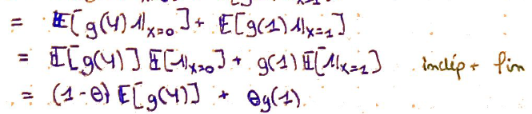 = E[g(Y) 1_{x=0}] + E[g(1) 1_{x=1}]
= E[g(Y)] E[1_{x=0}] + g(1) E[1_{x=1}] indép + lin
= (1-θ) E[g(Y)] + θg(1).